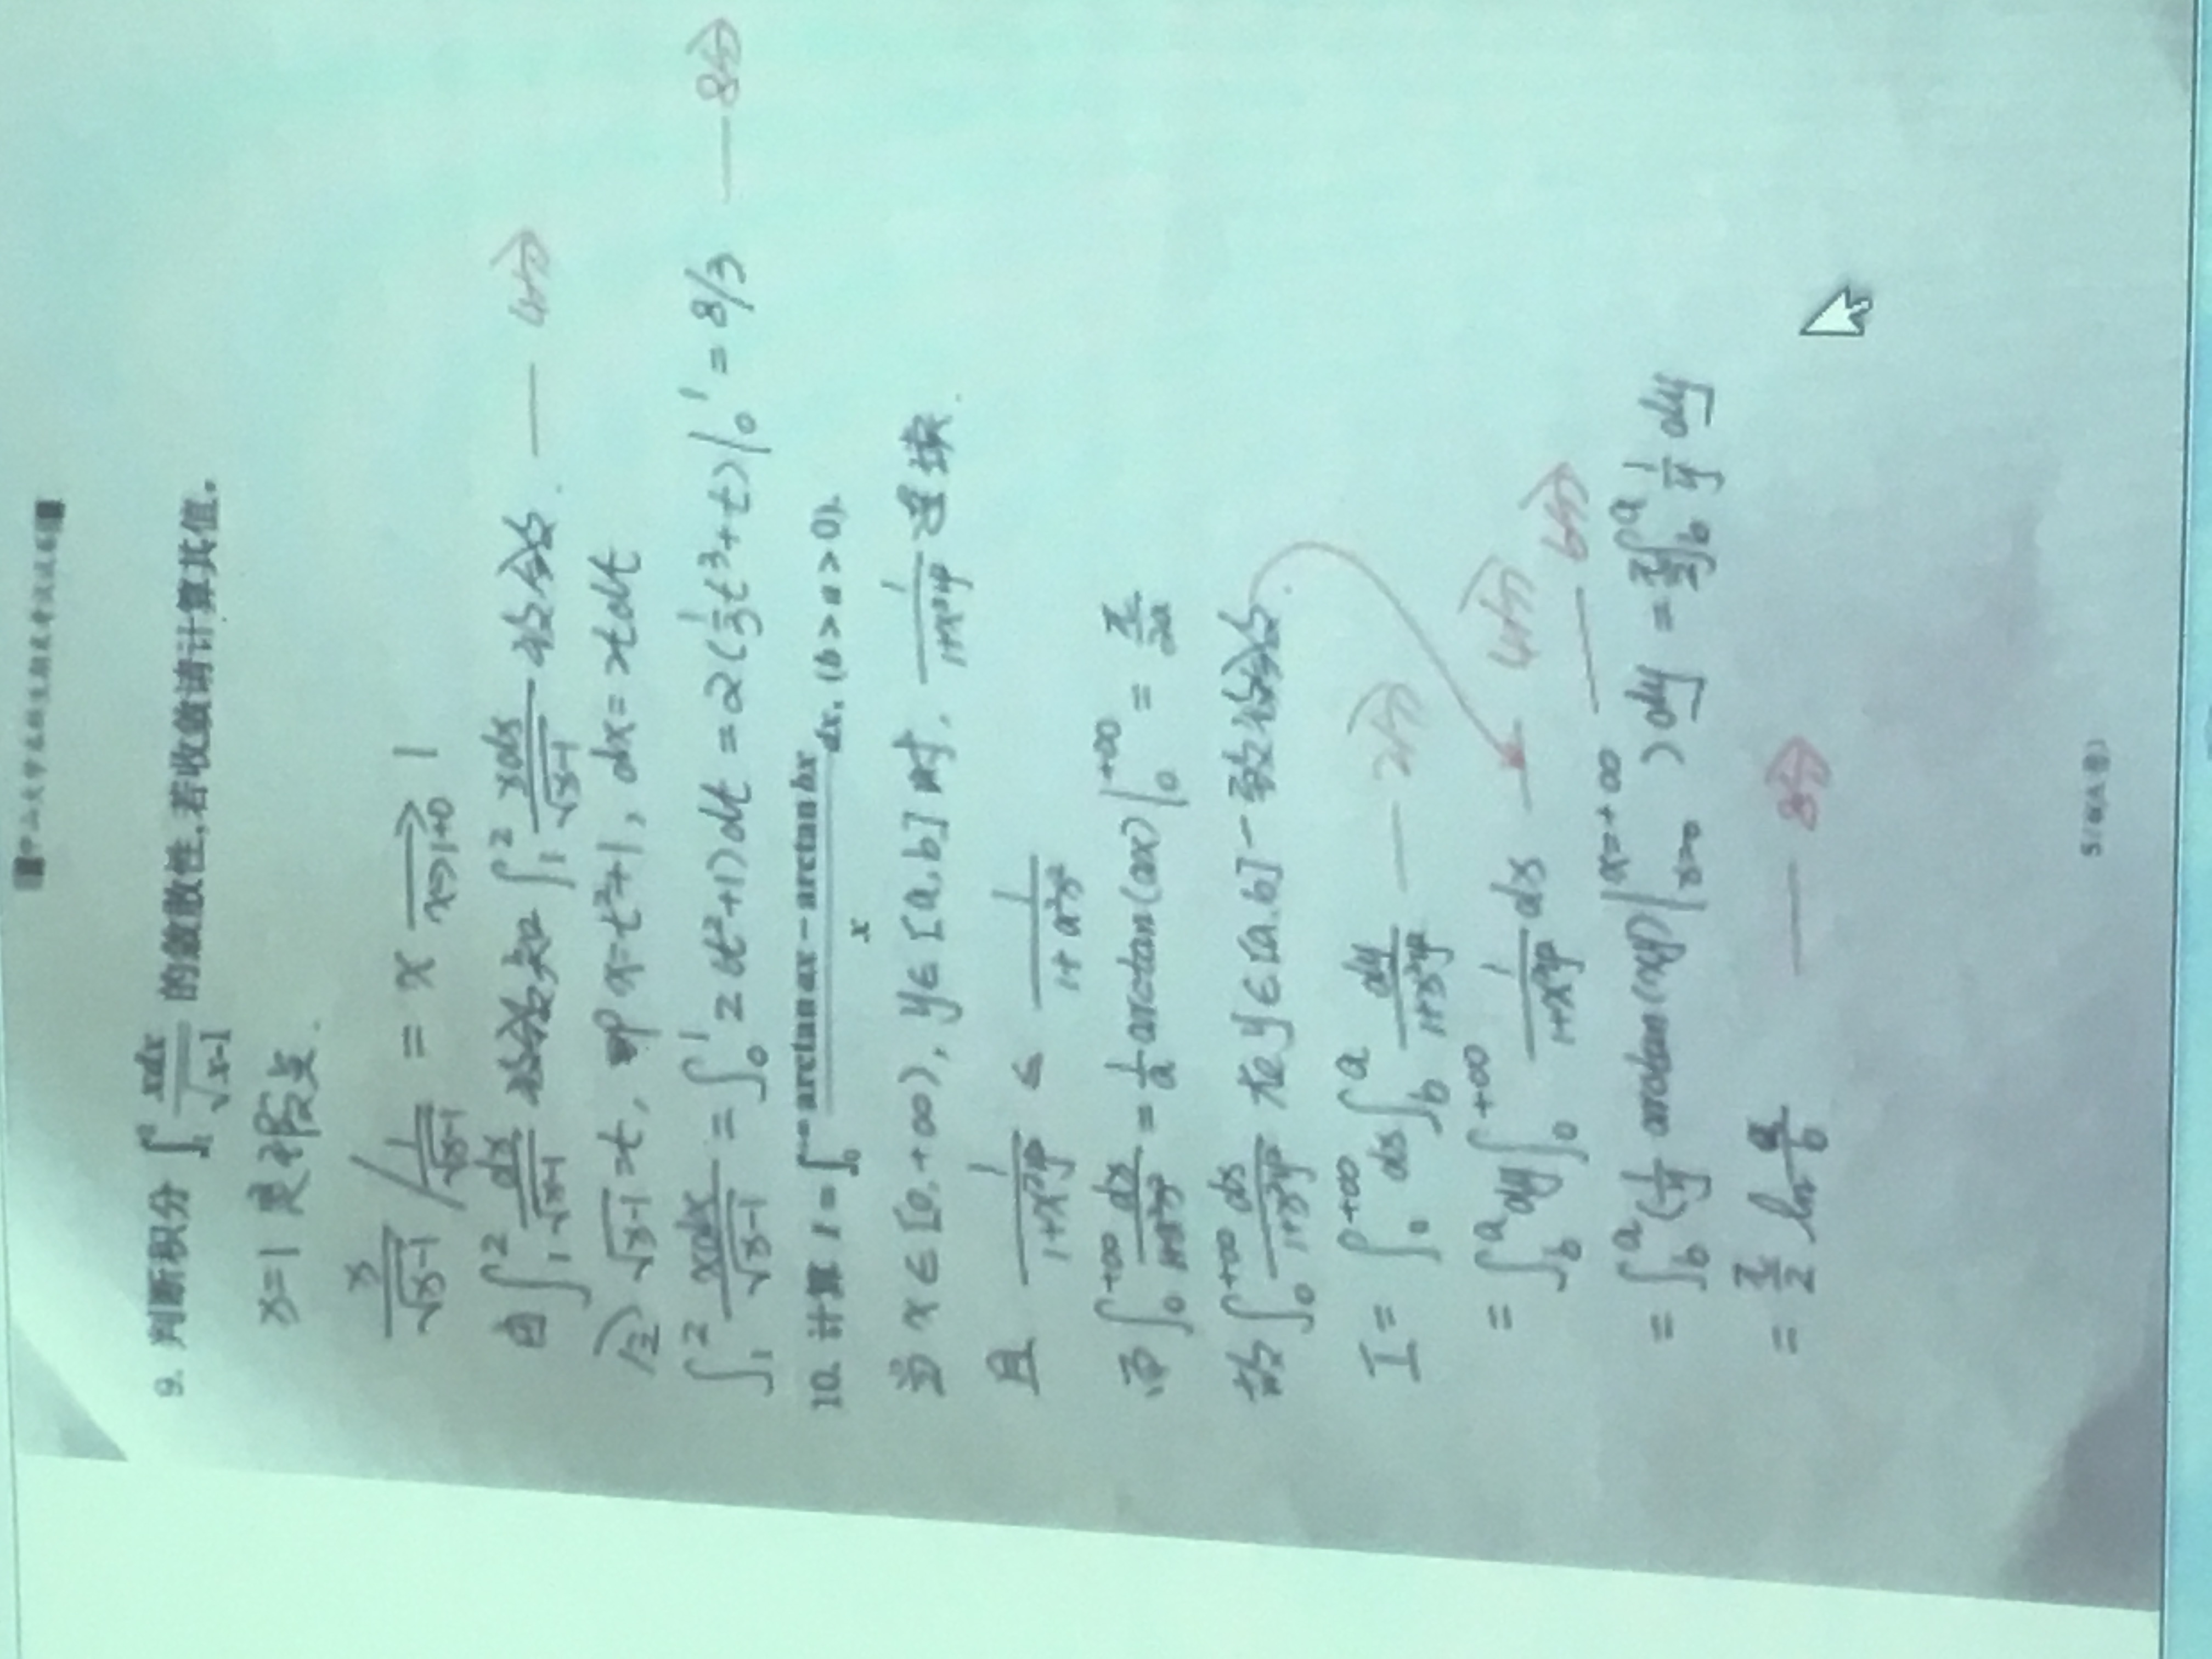 中山大学本科生期末考试试卷
9. 判断积分 ∫₁² xdx/√(x-1) 的敛散性,若收敛请计算其值。
x=1 是瑕点.
x/√(x-1) / 1/√(x-1) = x ⟶(x→1+0) 1
由 ∫₁² dx/√(x-1) 收敛知 ∫₁² xdx/√(x-1) 收敛. — 4分
令 √(x-1)=t, 即 x=t²+1, dx=2tdt
∫₁² xdx/√(x-1) = ∫₀¹ 2(t²+1)dt = 2(⅓t³+t)|₀¹ = 8/3 — 8分
10. 计算 I = ∫₀^{+∞} (arctan ax − arctan bx)/x dx, (b > a > 0).
当 x∈[0,+∞), y∈[a,b] 时, 1/(1+x²y²) 连续.
且 1/(1+x²y²) ≤ 1/(1+a²x²)
而 ∫₀^{+∞} dx/(1+a²x²) = 1/a arctan(ax)|₀^{+∞} = π/2a
故 ∫₀^{+∞} dx/(1+x²y²) 在 y∈[a,b] 一致收敛.
I = ∫₀^{+∞} dx ∫_b^a dy/(1+x²y²) — 2分
= ∫_b^a dy ∫₀^{+∞} 1/(1+x²y²) dx — 4分
= ∫_b^a (1/y arctan(xy)|_{x=0}^{x=+∞}) dy = π/2 ∫_b^a 1/y dy — 6分
= π/2 ln a/b — 8分
5/6(A卷)